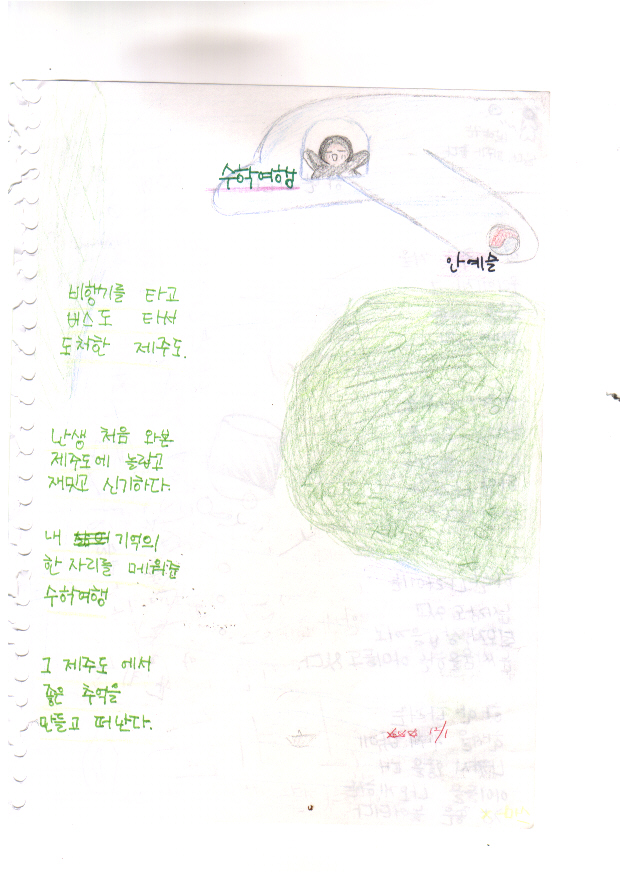 수학여행
안예슬
비행기를 타고
버스도 타서
도착한 제주도.
난생 처음 와본
제주도에 놀랍고
재밌고 신기하다.
내 기억의
한 자리를 메워줄
수학여행
그 제주도에서
좋은 추억을
만들고 떠난다.
12/1